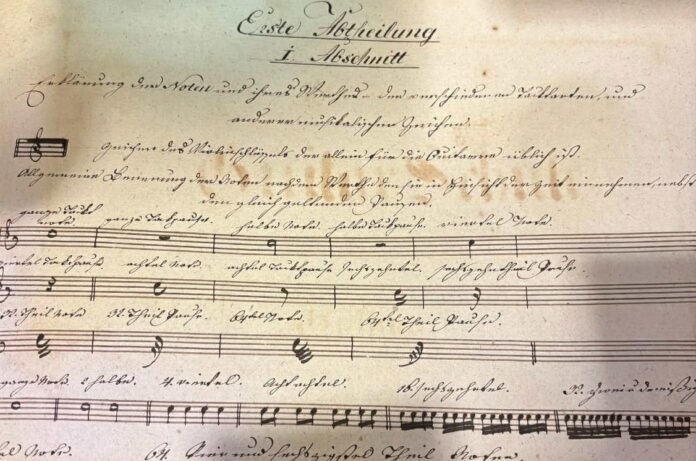 Erste Abtheilung
I. Abschnitt
Erklärung der Noten und ihres Werthes der verschiedenen Tacktarten, und
anderer musikalischen Zeichen.
Zeichen des Violinschlüssels der allein für die Guitarre üblich ist.
Allgemeine Benenung der Noten nach dem Werthe den sie in Hinsicht der Zeit einnehmen, nebst
den gleich geltenden Pausen.
ganze Tackt Note. ganze Tackpause. halbe Note. halbe Tackpause. viertel Note.
viertel Tackpause. achtel Note. achtel Tackpause sechszehntel. sechszehntheil Pause.
32. Theil Note 32. Theil Pause. 64tel Note. 64tel Theil Pause.
ganze Note. 2 halbe. 4. viertel. Acht achtel. 16. sechszehntel. 32. zwei u dreißig
Note. 64. Vier und sechzigstel Theil Noten.